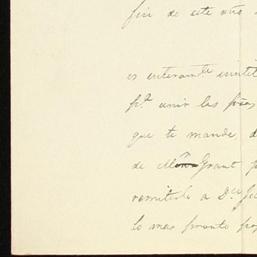 fin de este año
es enteramte inutil
pa unir las pzas
que te mande d
de Mr Grant p
remitirlo a Dn Ju
lo mas pronto pos